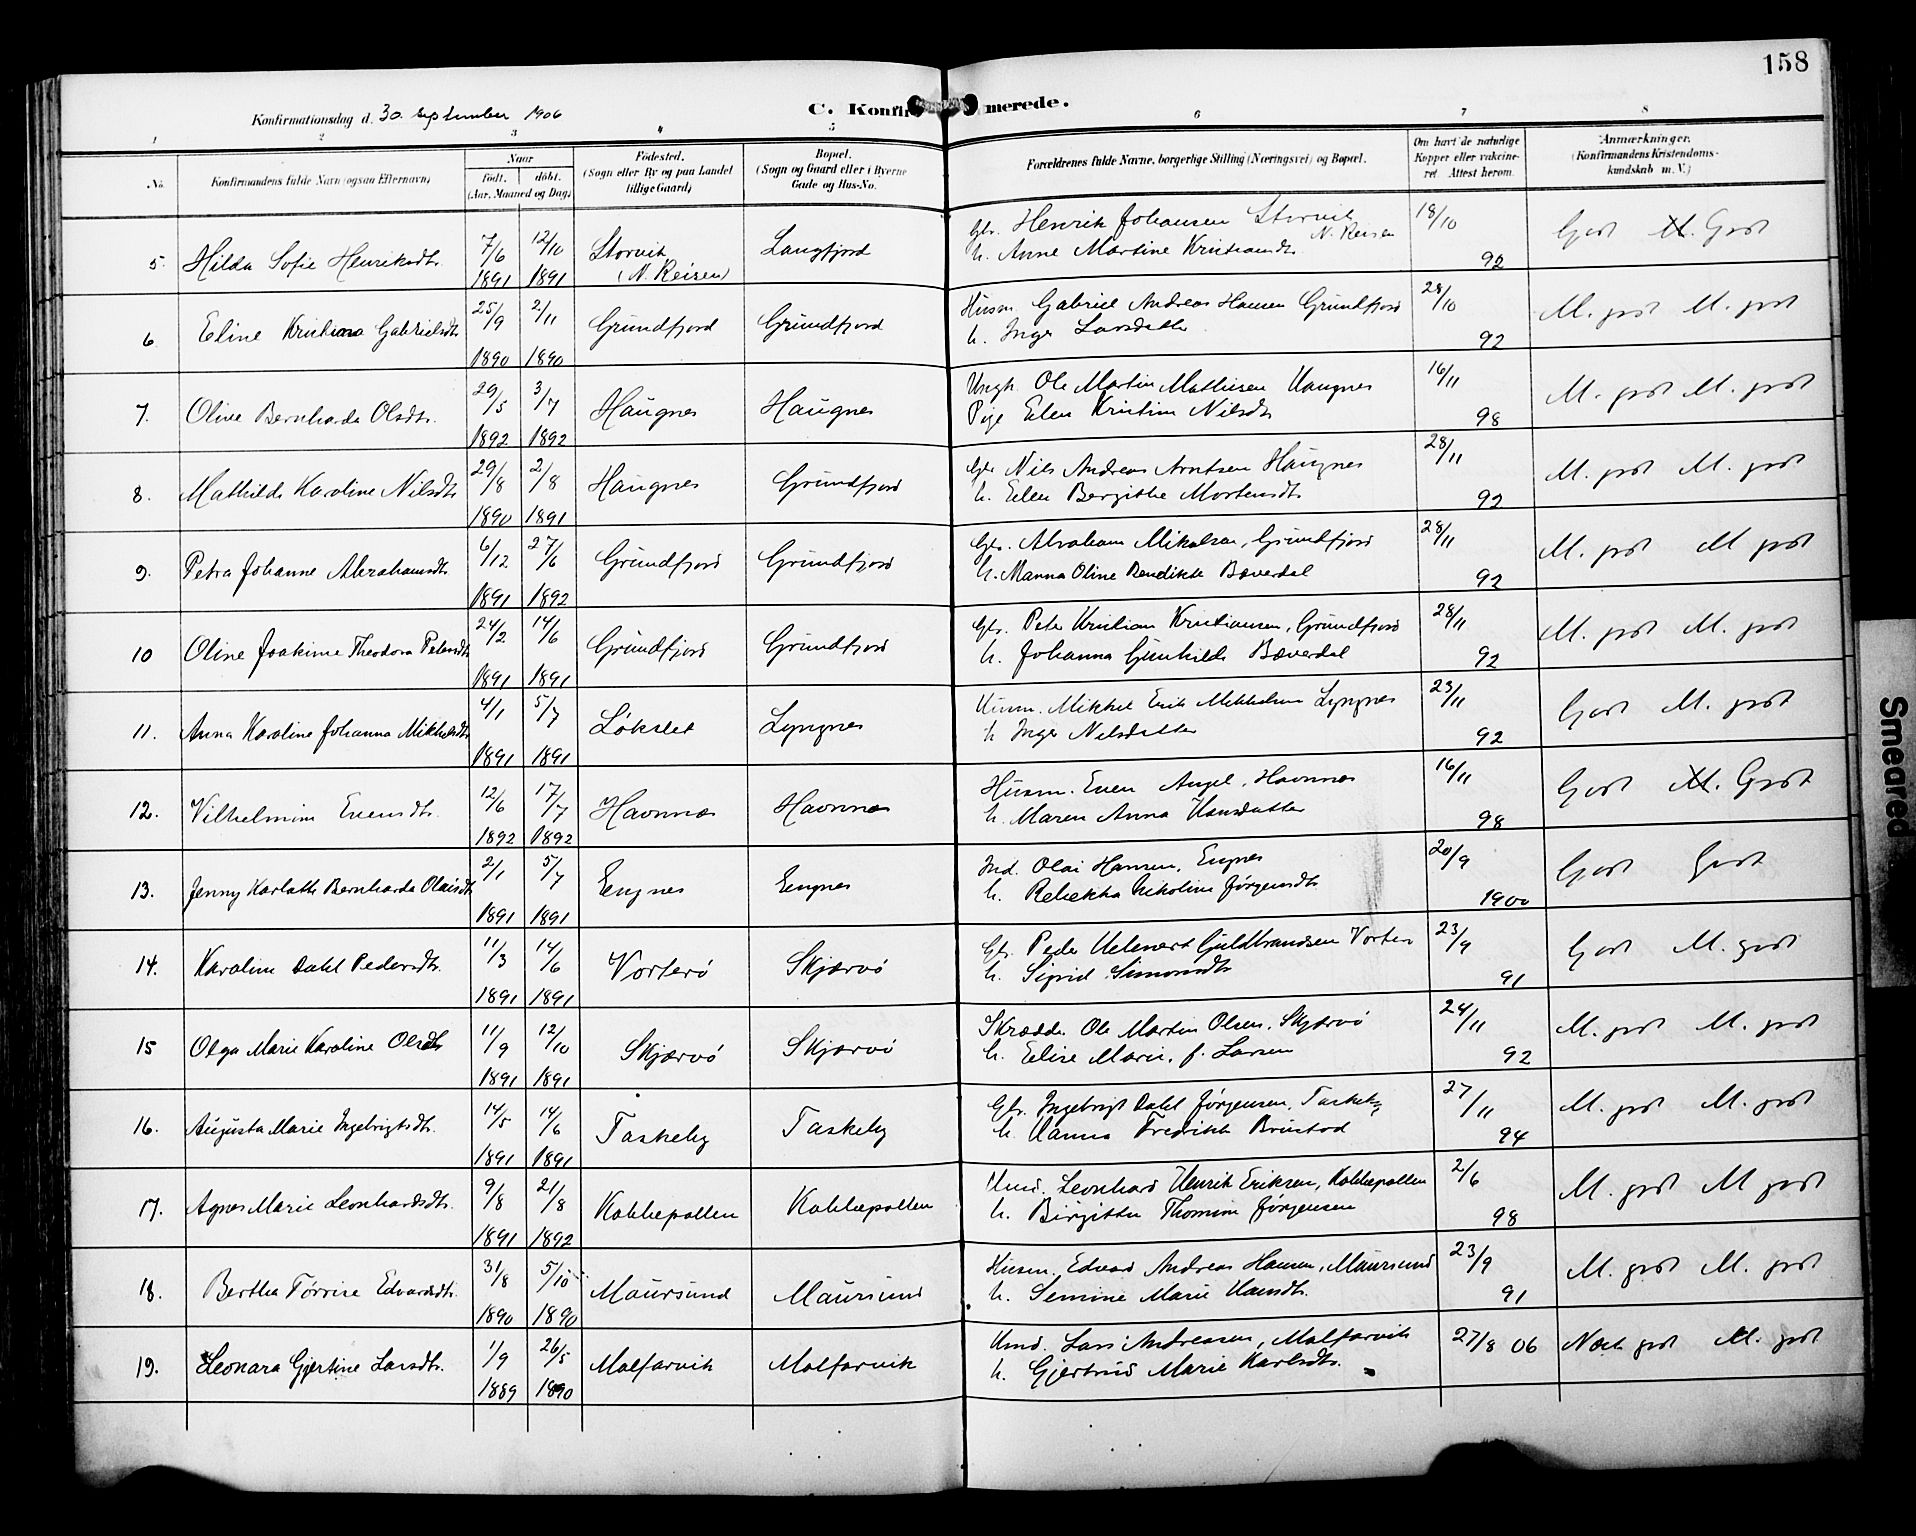 158
Konfirmationsdag d. 30. September 1906
C. Konfir merede.
1 2 3 4 5 6 7 8
No. Konfirmandens fulde Navn (ogsaa Efternavn)
Naar født. døbt. (Aar, Maaned og Dag)
Fødested. (Sogn eller By og paa Landet tillige Gaard)
Bopæl. (Sogn og Gaard eller i Byerne Gade og Hus-No.
Forældrenes fulde Navne, borgerlige Stilling (Næringsvei) og Bopæl.
Om havt de naturlige Kopper eller vakcineret. Attest herom.
Anmærkninger. (Konfirmandens Kristendomskundskab m. V.)
5. Hilda Sofie Henriksdtr. 7/6 1891 12/10 1891 Storvik (N. Reisen) Langfjord
Gbr. Henrik Johansen Storvik N. Reisen
h. Anne Martine Kristiansdtr. 18/10 92 Godt M. Godt
6. Eline Kristiana Gabrielsdtr. 25/9 1890 2/11 1890 Grundfjord Grundfjord
Husm. Gabriel Andreas Hansen Grundfjord
h. Inger Larsdatter 28/10 92 M. godt M. godt
7. Olive Bernharda Olsdtr. 29/5 1892 3/7 1892 Haugnes Haugnes
Ungk. Ole Martin Mathisen Haugnes
Pige Elen Kristine Nilsdtr 16/11 98 M. godt M. godt
8. Mathilde Karoline Nilsdtr 29/8 1890 2/8 1891 Haugnes Grundfjord
Gbr Nils Andreas Arntsen Haugnes
h. Elen Bergitte Mortensdtr 28/11 92 M. godt M. godt
9. Petra Johanne Abrahamsdtr. 6/12 1891 27/6 1892 Grundfjord Grundfjord
Gbr. Abraham Mikalsen, Grundfjord
h. Manna Oline Bendikte Bæverdal 28/11 92 M. godt M godt
10 Oline Joakime Theodora Petersdtr 24/2 1891 14/6 1891 Grundfjord Grundfjord
Gbr. Peter Kristian Kristiansen, Grundfjord
h. Johanna Gunhilde Bæverdal 28/11 92 M. godt M. godt
11. Anna Karoline Johanna Mikkelsdtr 4/1 1891 5/7 1891 Løkslet Lyngnes
Husm. Mikkel Erik Mikkelsen Lyngnes
h Inger Nilsdatter 23/11 92 Godt M. godt
12. Vilhelmine Evensdtr. 12/6 1892 17/7 1892 Havnnæs Havnnæs
Husm. Even Angel, Havnnæs
h. Maren Anna Hansdatter 16/11 98 Godt M. Godt
13. Jenny Karlotte Bernharda Olaisdtr 2/1 1891 5/7 1891 Engnes Engnes
Ind. Olai Hansen, Engnes
h. Rebekka Nikoline Jørgensdtr 20/9 1900 Godt Godt
14. Karoline Dahl Pedersdtr. 11/3 1891 14/6 1891 Vorterø Skjærvö
Gbr. Peder Helmert Guldbrandsen Vorterø
h. Sigrid Simonsdtr 23/9 91 Godt M. godt
15 Olga Marie Karoline Olsdtr 11/9 1891 12/10 1891 Skjærvö Skjærvö
Skrædder Ole Martin Olsen, Skjærvö
h. Elise Marie, f. Larsen 24/11 92 M. godt M. godt
16. Augusta Marie Ingebrigtsdtr. 14/5 1891 14/6 1891 Taskeby Taskeby
Gbr. Ingebrigt Dahl Jørgensen, Taskeby
h. Hanna Fredrikke Brustad 27/11 94 M. godt M. godt
17. Agnes Marie Leonhardsdtr. 9/8 1891 21/8 1892 Kobbepollen Kobbepollen
Husm. Leonhard Henrik Eriksen, Kobbepollen
h. Birgitte Thomine Jørgensen 2/6 98 M. godt M godt
18. Bertha Tørrise Edvardsdtr. 31/8 1890 5/10 1890 Maursund Maursund
Husm. Edvard Andreas Hansen, Maursund
h. Semine Marie Hansdtr. 23/9 91 M. godt M. godt
19. Leonara Gjertine Larsdtr. 1/9 1889 26/5 1890 Molfarvik Molfarvik
Husm. Lars Andreasen, Molfarvik
h. Gjertrud Marie Karlsdtr. 27/8 06 Nok godt M. godt
Smeared